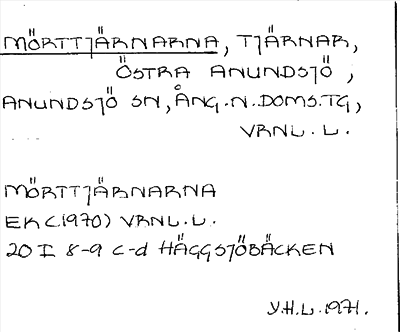 MÖRTTJÄRNARNA, TJÄRNAR,
ÖSTRA ANUNDSJÖ,
ANUNDSJÖ SN, ÅNG.N.DOMS.TG,
VRNL.L.
MÖRTTJÄRNARNA
EK (1970) VRNL.L.
20 I 8-9 c-d HÄGGSJÖBÄCKEN
Y.H.L.1971.